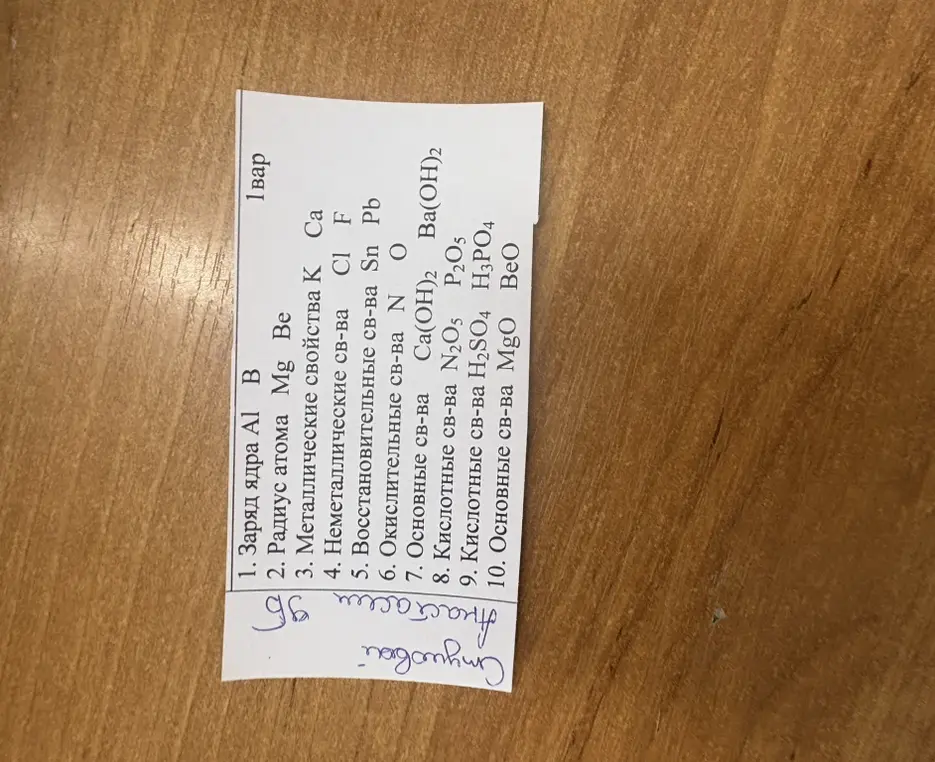 1вар
1. Заряд ядра Al B
2. Радиус атома Mg Be
3. Металлические свойства K Ca
4. Неметаллические св-ва Cl F
5. Восстановительные св-ва Sn Pb
6. Окислительные св-ва N O
7. Основные св-ва Ca(OH)₂ Ba(OH)₂
8. Кислотные св-ва N₂O₅ P₂O₅
9. Кислотные св-ва H₂SO₄ H₃PO₄
10. Основные св-ва MgO BeO